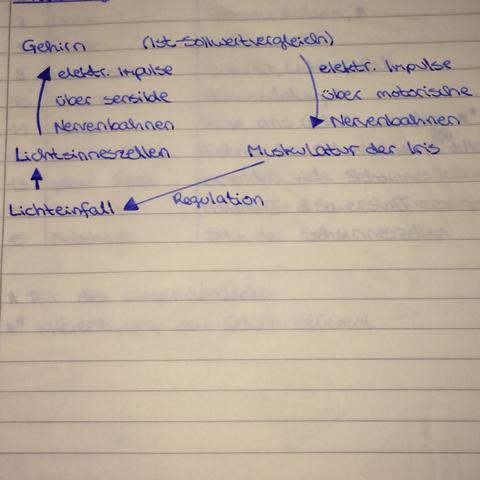 Gehirn (Ist-Sollwertvergleich)
elektr. Impulse elektr. Impulse
über sensible über motorische
Nervenbahnen Nervenbahnen
Lichtsinneszellen Muskulatur der Iris
Lichteinfall Regulation